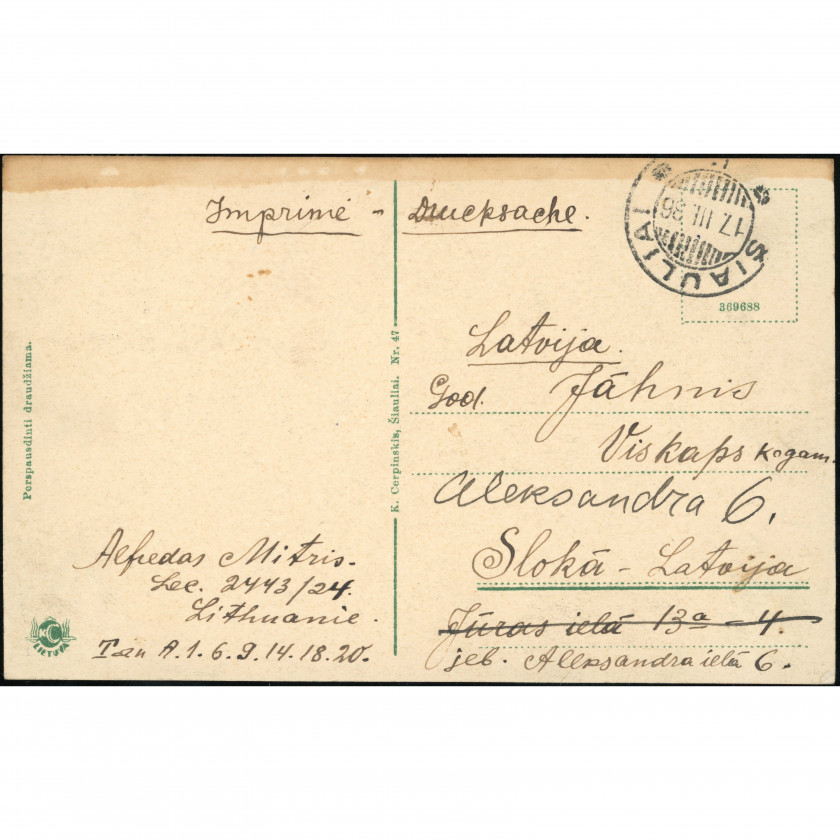 Imprimé - Drucksache.
ŠIAULIAI
17. III. 36
369688
Latvija.
God. Jāhnis
Viskaps kogam.
Aleksandra 6.
Slokā - Latvija
Jūras ielā 13a - 4
jeb. Aleksandra ielā 6.
Perspausdinti draudžiama.
K. Cerpinskis, Šiauliai. Nr. 47
Alfredas Mitris.
Lec. 2443/24.
Lithuanie.
Tan A.1.6.9.14.18.20.
LIETUVA